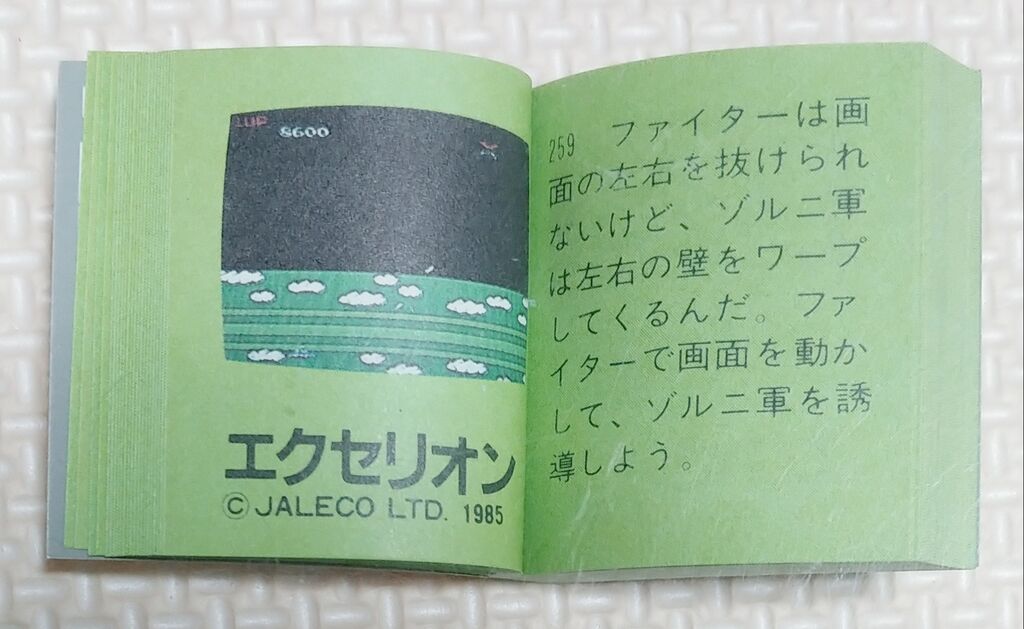 1UP 8600
エクセリオン
©JALECO LTD. 1985
259 ファイターは画
面の左右を抜けられ
ないけど、ゾルニ軍
は左右の壁をワープ
してくるんだ。ファ
イターで画面を動か
して、ゾルニ軍を誘
導しよう。